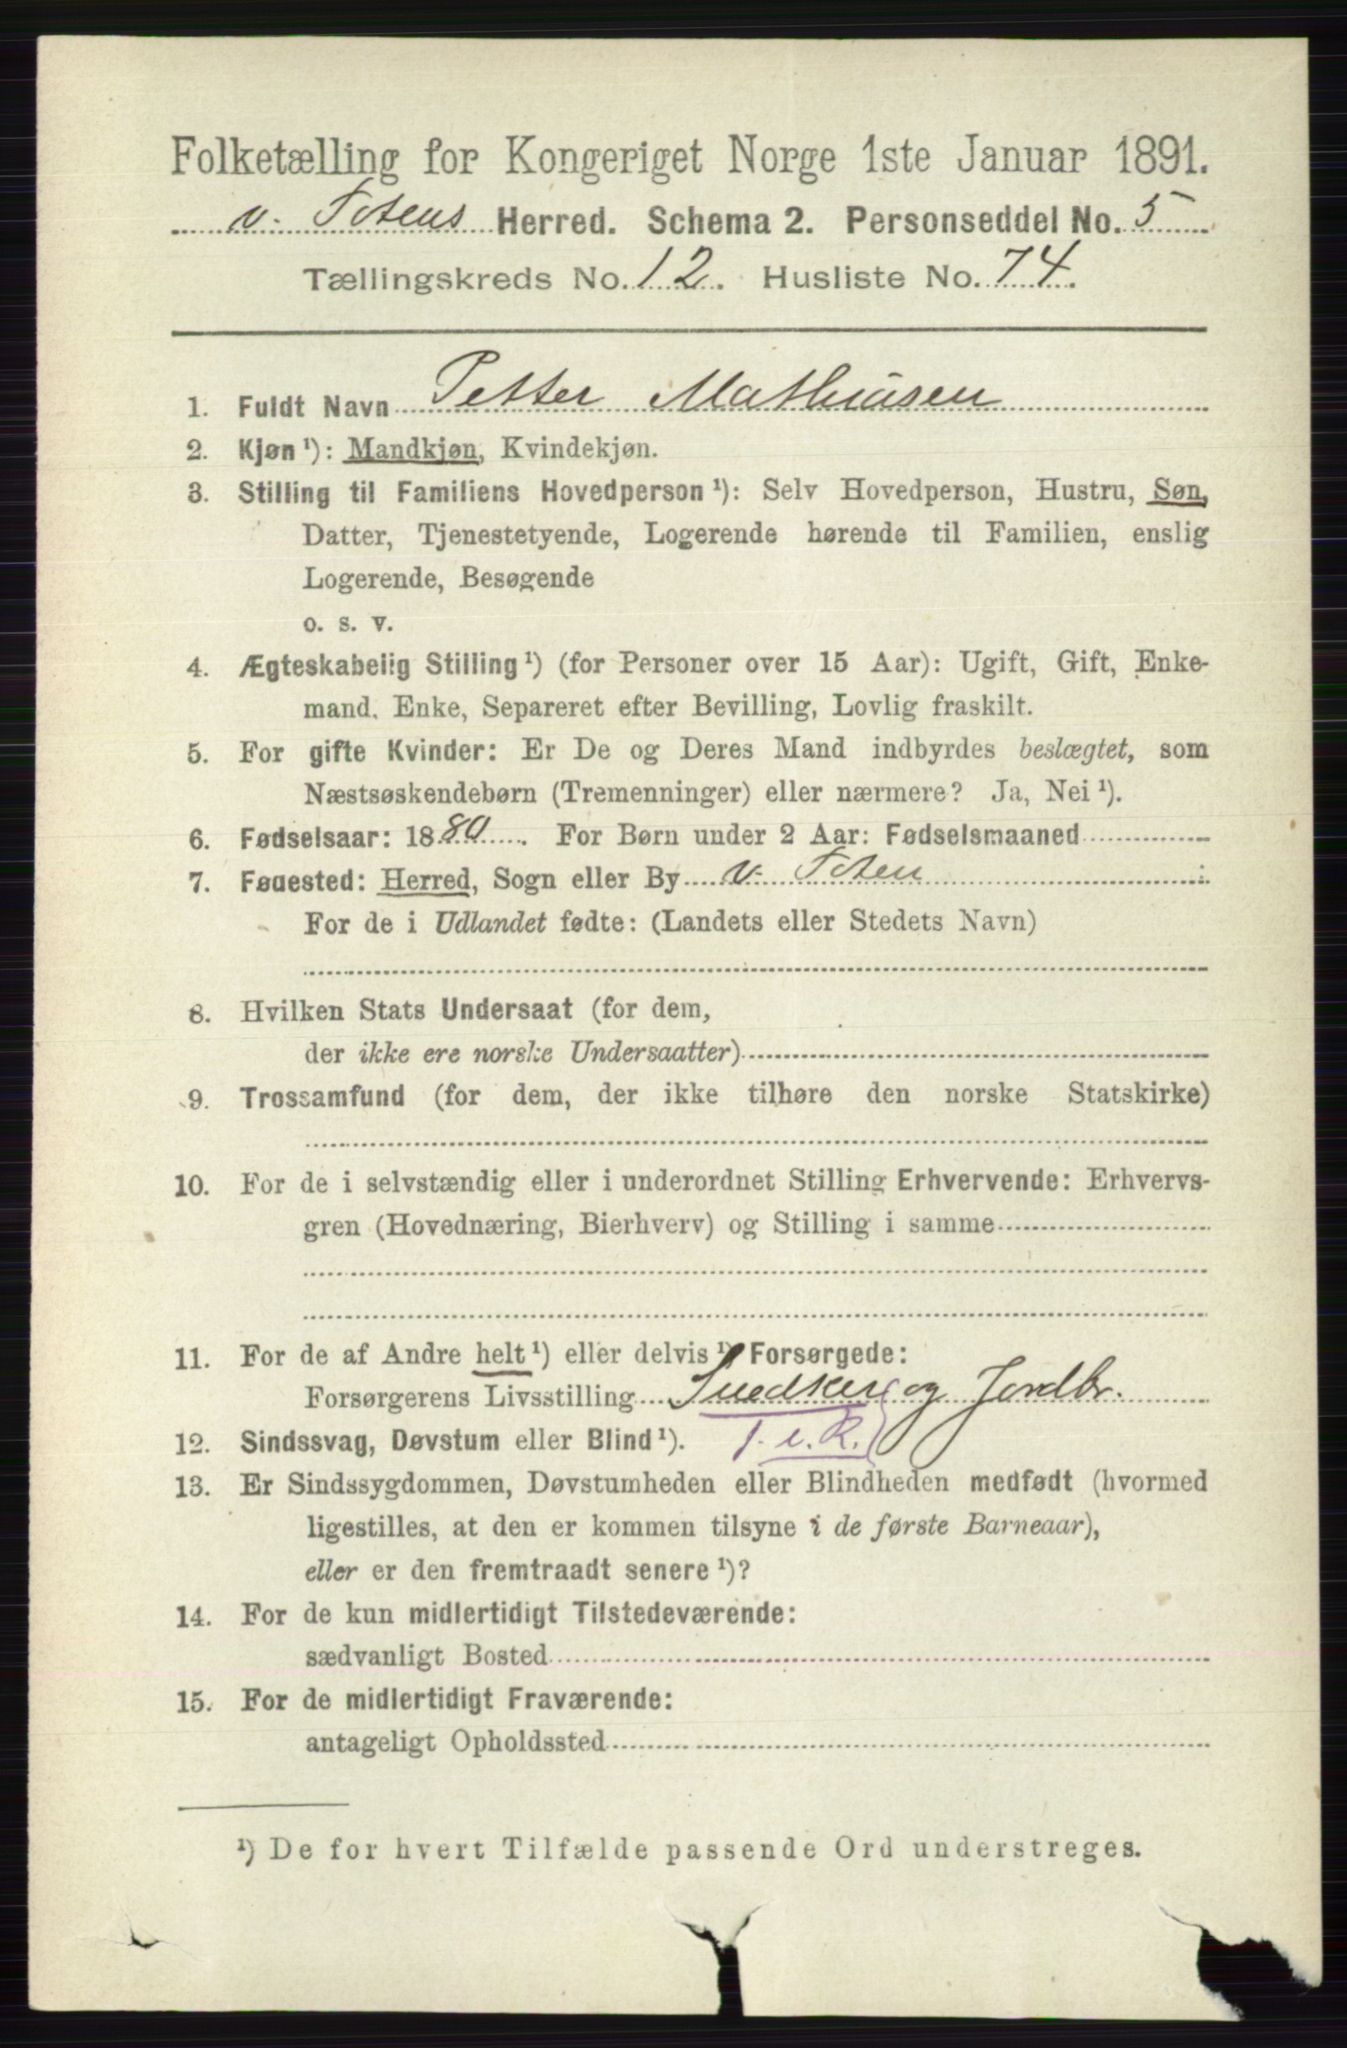 Folketælling for Kongeriget Norge 1ste Januar 1891.
v. Totens Herred. Schema 2. Personseddel No. 5
Tællingskreds No. 12. Husliste No. 74.
1. Fuldt Navn Petter Mathiasen
2. Kjøn ¹): Mandkjøn, Kvindekjøn.
3. Stilling til Familiens Hovedperson ¹): Selv Hovedperson, Hustru, Søn,
Datter, Tjenestetyende, Logerende hørende til Familien, enslig
Logerende, Besøgende
o. s. v.
4. Ægteskabelig Stilling ¹) (for Personer over 15 Aar): Ugift, Gift, Enke-
mand, Enke, Separeret efter Bevilling, Lovlig fraskilt.
5. For gifte Kvinder: Er De og Deres Mand indbyrdes beslægtet, som
Næstsøskendebørn (Tremenninger) eller nærmere? Ja, Nei ¹).
6. Fødselsaar: 1880. For Børn under 2 Aar: Fødselsmaaned
7. Fødested: Herred, Sogn eller By v. Toten
For de i Udlandet fødte: (Landets eller Stedets Navn)
8. Hvilken Stats Undersaat (for dem,
der ikke ere norske Undersaatter)
9. Trossamfund (for dem, der ikke tilhøre den norske Statskirke)
10. For de i selvstændig eller i underordnet Stilling Erhvervende: Erhvervs-
gren (Hovednæring, Bierhverv) og Stilling i samme
11. For de af Andre helt ¹) eller delvis ¹) Forsørgede:
Forsørgerens Livsstilling Snedker og Jordbr.
12. Sindssvag, Døvstum eller Blind ¹).
13. Er Sindssygdommen, Døvstumheden eller Blindheden medfødt (hvormed
ligestilles, at den er kommen tilsyne i de første Barneaar),
eller er den fremtraadt senere ¹)?
14. For de kun midlertidigt Tilstedeværende:
sædvanligt Bosted
15. For de midlertidigt Fraværende:
antageligt Opholdssted
¹) De for hvert Tilfælde passende Ord understreges.